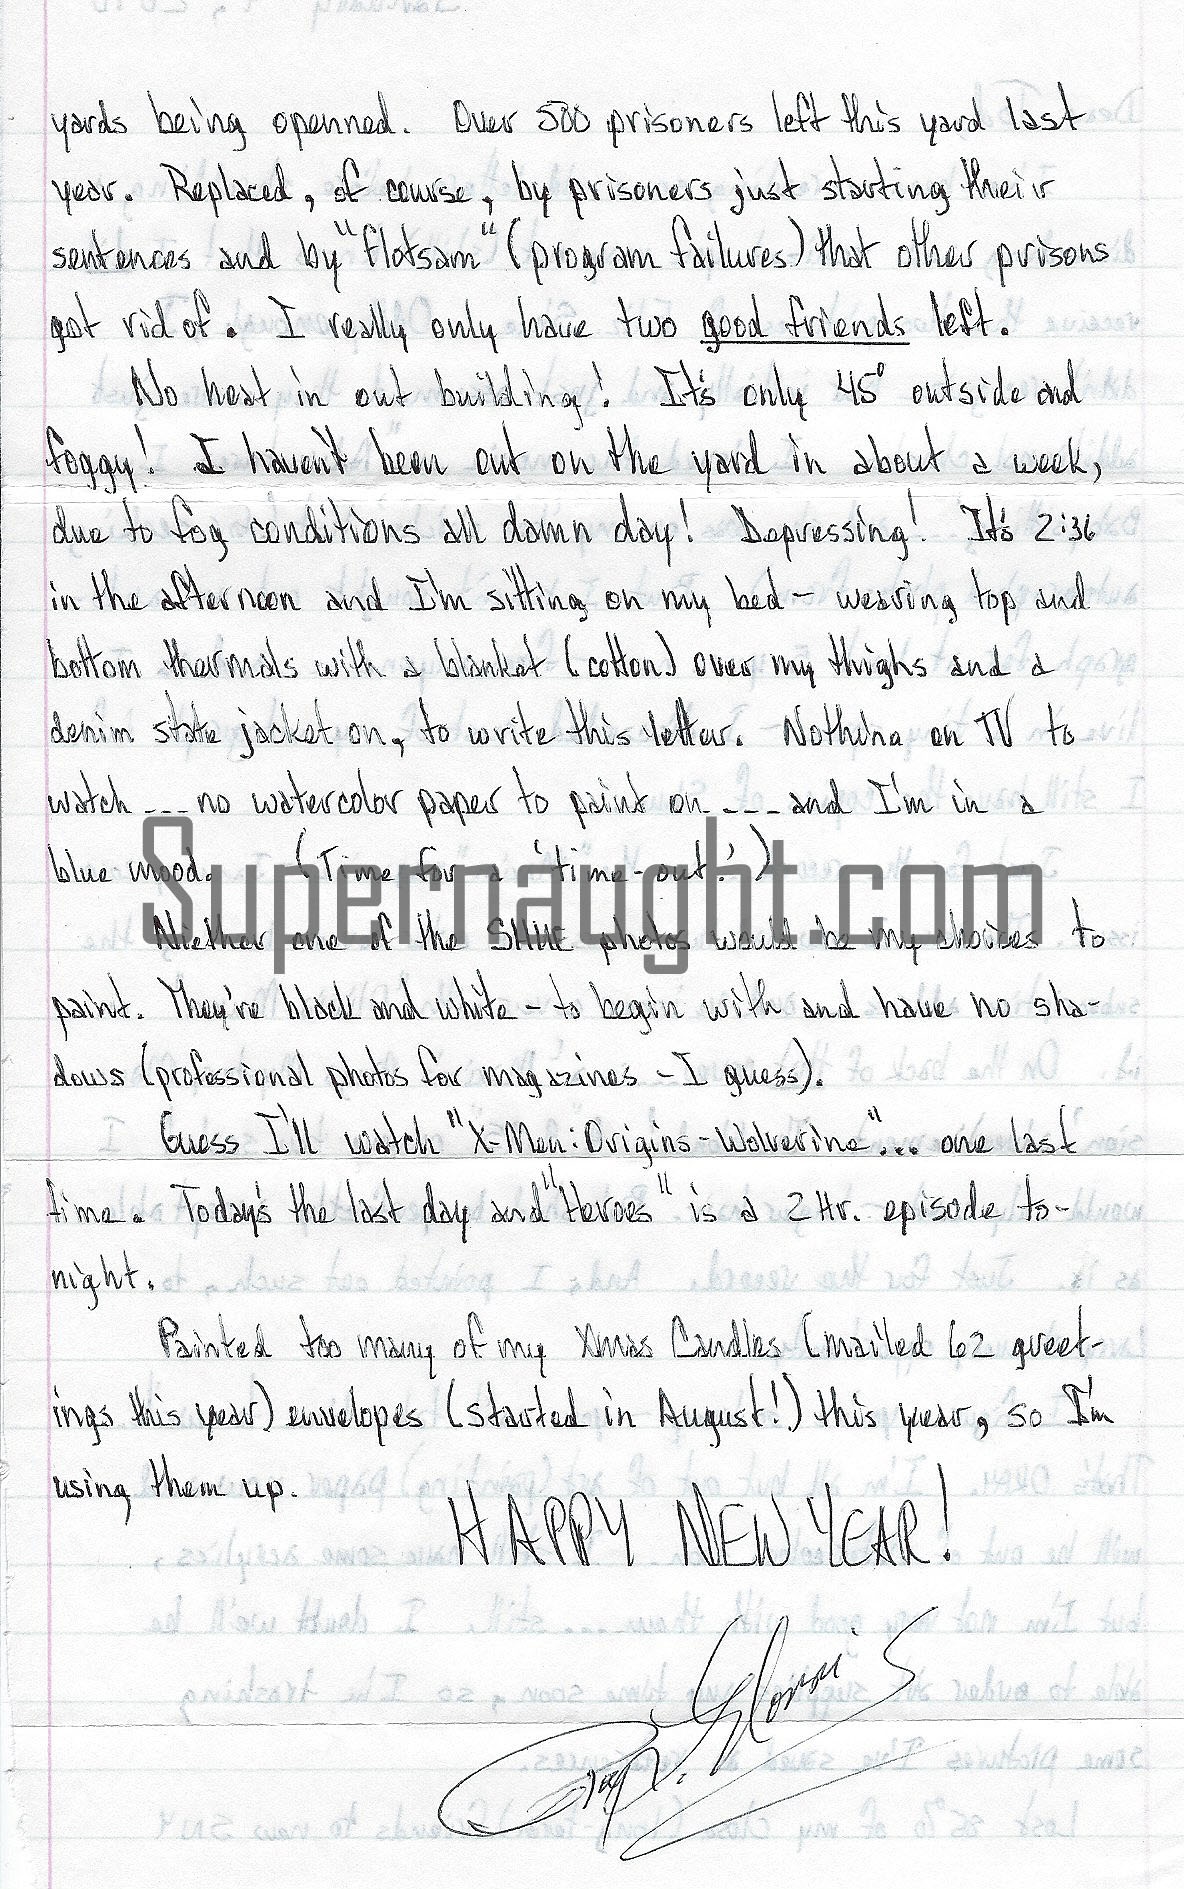 yards being openned. Over 500 prisoners left this yard last
year. Replaced, of course, by prisoners just starting their
sentences and by "flotsam" (program failures) that other prisons
got rid of. I really only have two good friends left.
No heat in out building! It's only 45° outside and
foggy! I haven't been out on the yard in about a week,
due to fog conditions all damn day! Depressing! It's 2:36
in the afternoon and I'm sitting on my bed - wearing top and
bottom thermals with a blanket (cotton) over my thighs and a
denim state jacket on, to write this letter. Nothing on TV to
watch --- no watercolor paper to paint on --- and I'm in a
blue mood. (Time for a 'time-out!')
Supernaught.com
Niether one of the photos would be my choices to
paint. They're black and white - to begin with and have no sha-
dows (professional photos for magazines - I guess).
Guess I'll watch "X-Men: Origins - Wolverine"... one last
time. Today's the last day and "Heroes" is a 2 Hr. episode to-
night.
Painted too many of my Xmas Candles (mailed 62 greet-
ings this year) envelopes (started in August!) this year, so I'm
using them up.
HAPPY NEW YEAR!